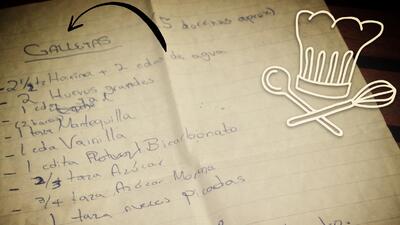 (5 docenas aprox)
GALLETAS
2 1/2 tz Harina + 2 cdas de agua
- 2 Huevos grandes
- 1 cdta
(2 barras)
1 taza Mantequilla
- 1 cda Vainilla
- 1 cdita Bicarbonato
- 3/4 taza Azúcar
- 3/4 taza Azúcar Morena
- 1 taza nueces Picadas